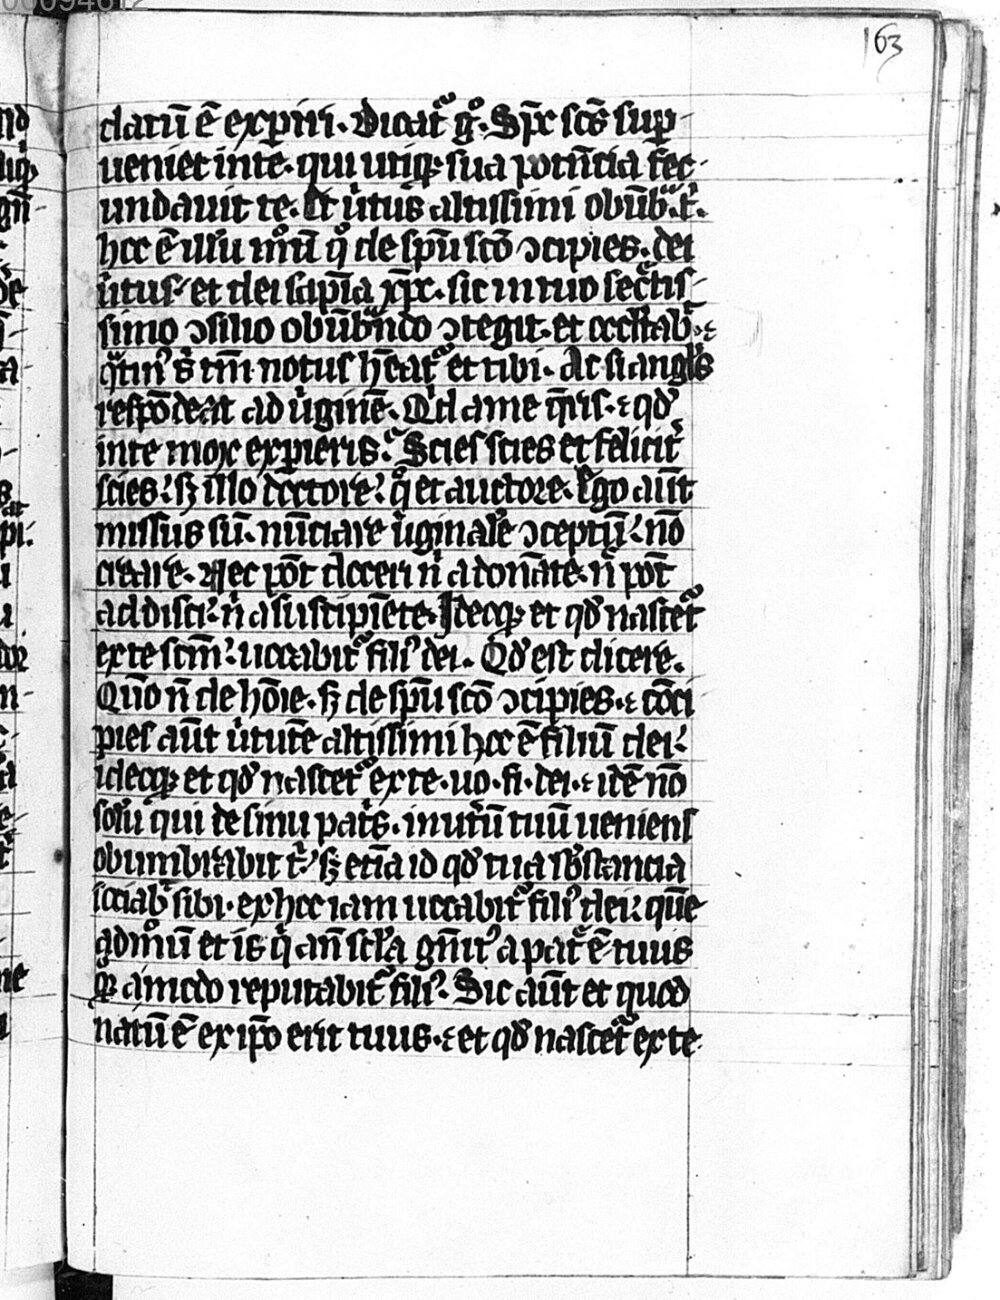 163
datū ē exp̱iri. Dicat᷑ gͦ. Sp̄c scs̄ sup̱
ueniet in te. qui utiqꝫ sua potn̄cia fec
undauit te. Et uͥtus altissimi obūb᷑.t᷑.
hoc ē illū modū qͦ de sp̄u scō ɔcipies. dei
uͥtus et dei sapīa xp̄c. sic in tuo sec᷑tis
simo ɔsilio obūb᷑ndo ɔtegit. et occltab᷑.⁊
qͣtin᷒ s᷑ tm̄ notus hēat᷑ et tibi. Ac si angl᷒s
respōdeat ad uͥginē. Qͥd a me q̄ris. ⁊ qd᷒
in te mox exp̱ieris. Scies scies et felicit᷑
scies. sꝫ illo doctore. qͦ et auctore. Ego aūt
missus sū. nūciare uͥginalē ɔceptū. nō
creare. Nec pōt doceri nͥ a donāte. nͥ pōt
addisci. nͥ a suscipiēte. Ideoqꝫ et qd᷒ nascet᷑
ex te scm̄. uocabit᷑ fili᷒ dei. Qd᷒ est dicere.
Qm̄o n̄ de hōīe. sꝫ de sp̄u scō ɔcipies. ⁊ cōci
pies aūt uͥtutē altissimi hoc ē filiū dei.
ideoqꝫ et qd᷒ nascet᷑ ex te. uo. fi. dei. ⁊ id ē nō
solū qui de sinu pat᷑s. in ut᷑ū tuū ueniens
obumbrabit t᷑. sꝫ etīa id qd᷒ tua sb᷒stancia
sociab᷑ sibi. ex hoc iam uocabit᷑ fili᷒ dei. quē
admodū et is qͥ an̄ scl̄a gn̄it᷒ a pat᷑ ē tuus
qꝫ amodo reputabit᷑ fili᷒. Sic aūt et quod
natū ē ex ip̄o erit tuus. ⁊ et qd᷒ nascet᷑ ex te